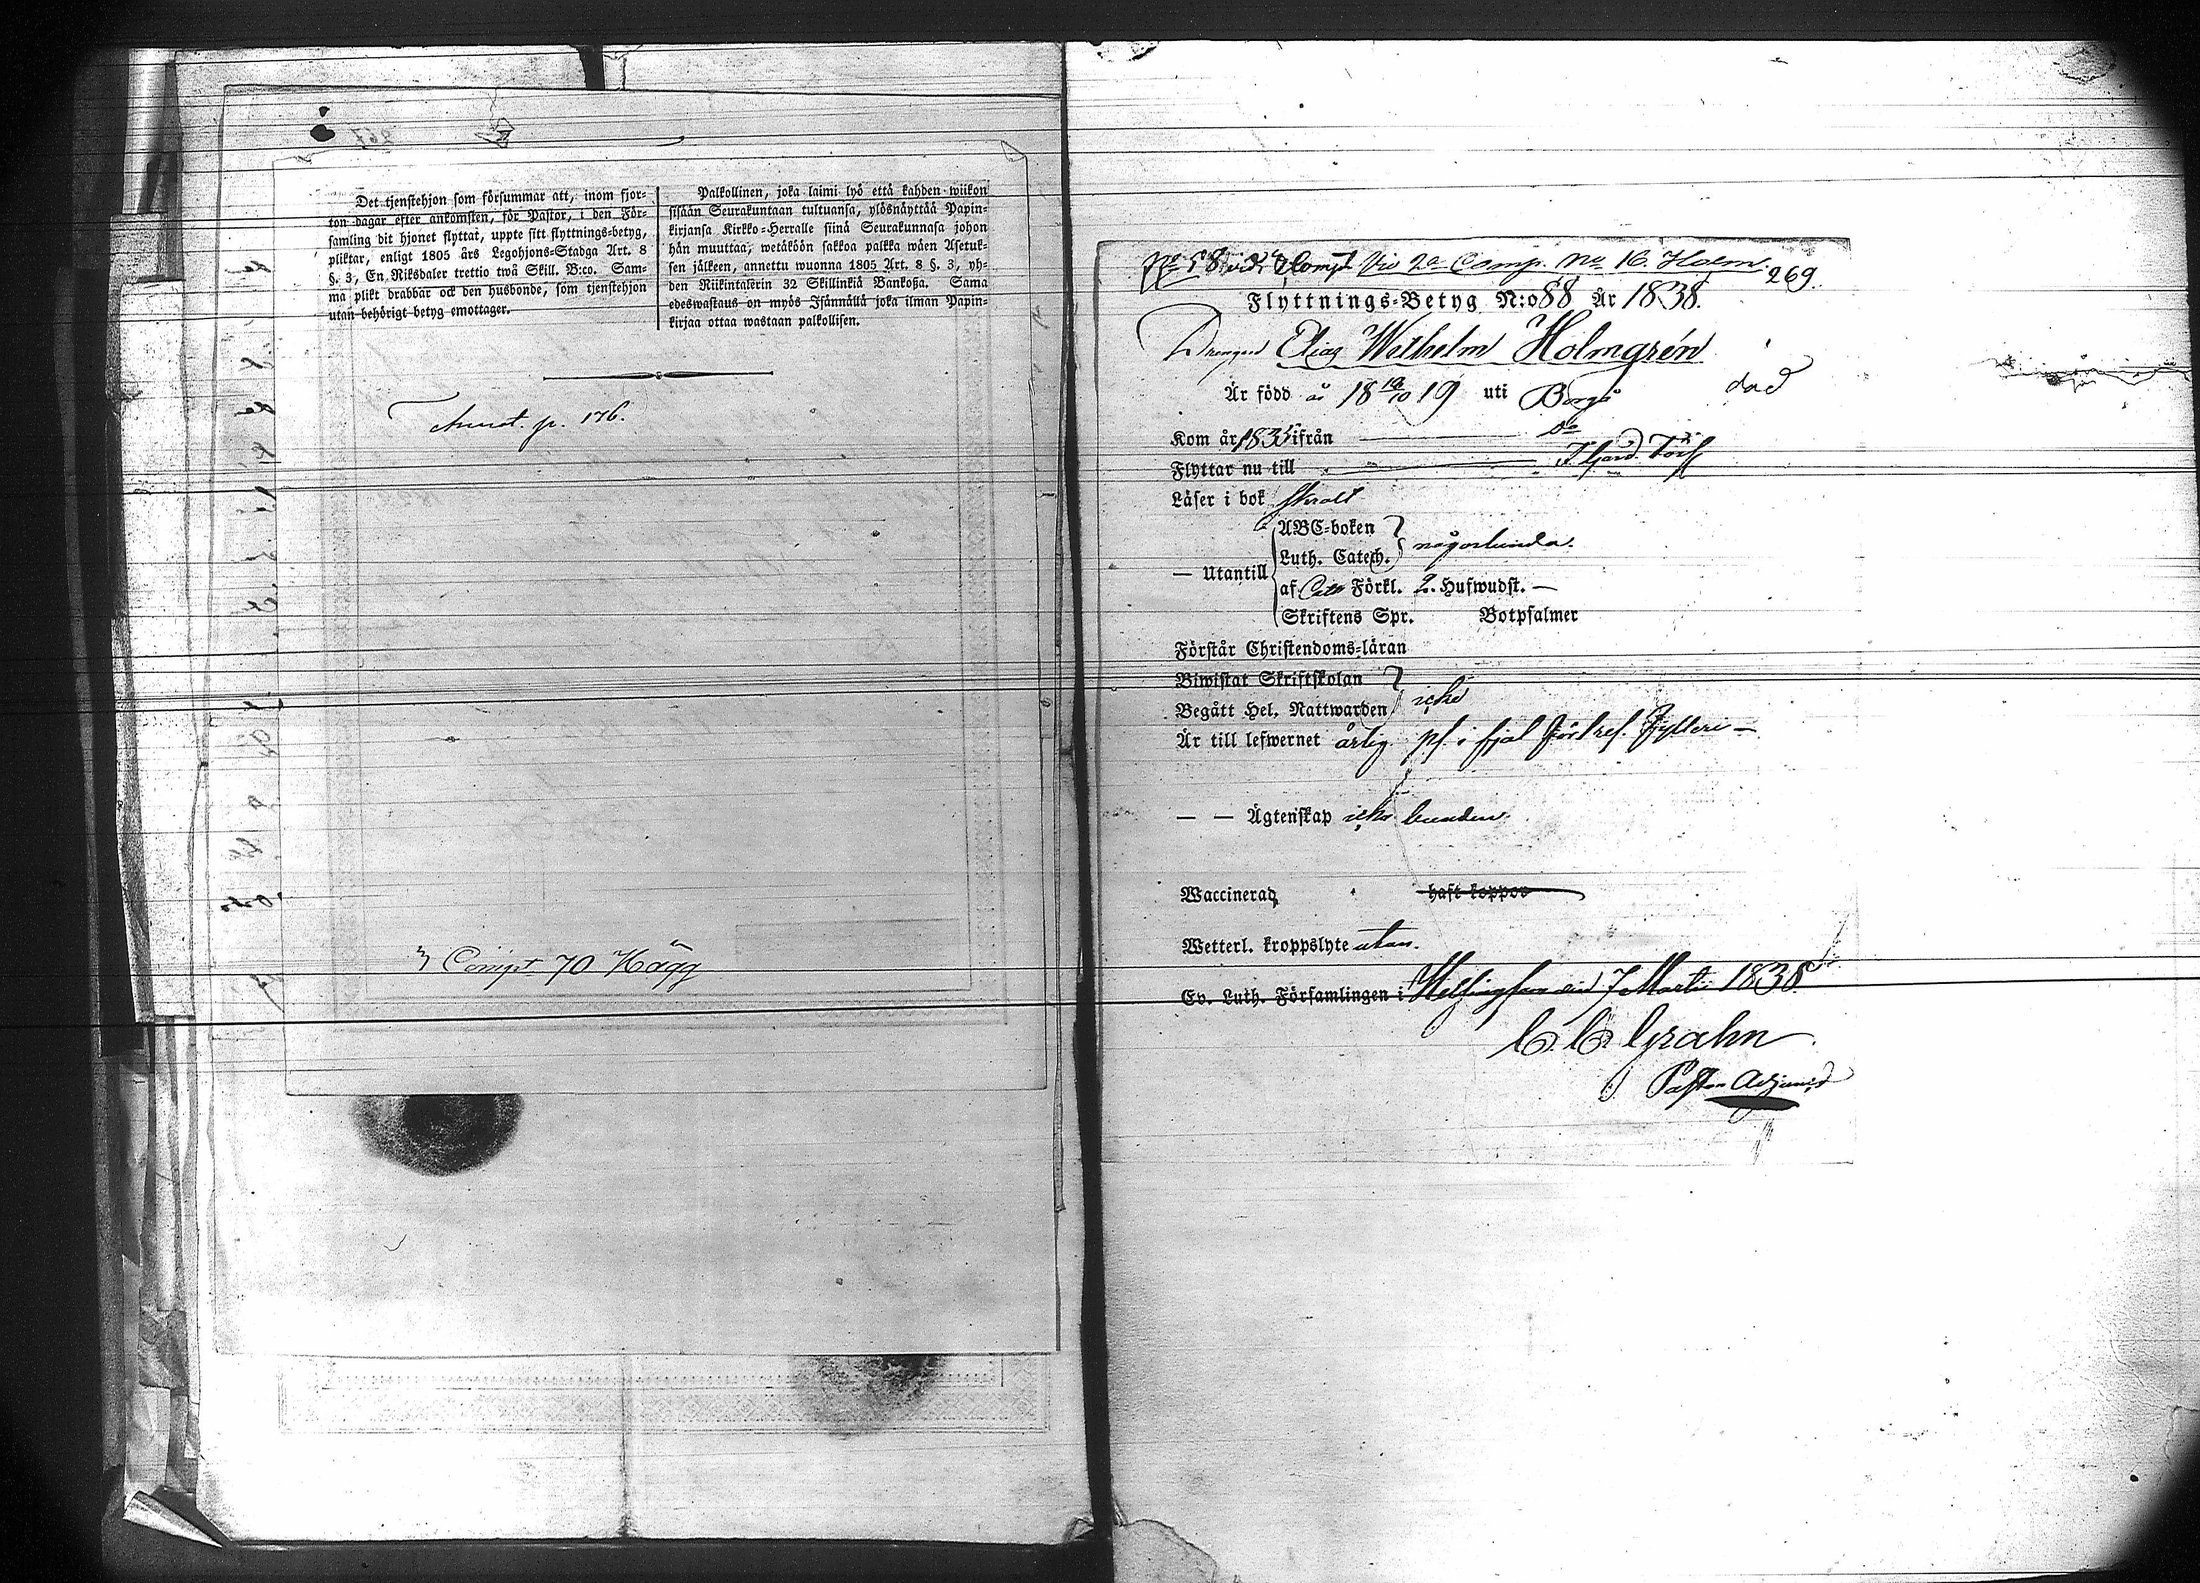 Det tjenstehjon som försummar att, inom fjor-
ton dagar efter ankomsten, för Pastor, i den För-
samling dit hjonet flyttat, uppte sitt flyttnings-betyg,
pliktar, enligt 1805 års Legohjons-Stadga Art. 8
§. 3, En Riksdaler trettio twå Skill. B:co. Sam-
ma plikt drabbar ock den husbonde, som tjenstehjon
utan behörigt betyg emottager.
Palkollinen, joka laimi lyö että kahden wiikon
sisään Seurakuntaan tultuansa, ylösnäyttää Papin-
kirjansa Kirkko-Herralle siinä Seurakunnasa johon
hän muuttaa, wetäköön sakkoa palkka wäen Asetuk-
sen jälkeen, annettu wuonna 1805 Art. 8 §. 3, yh-
den Riikintalerin 32 Skillinkiä Bankosa. Sama
edeswastaus on myös Isännällä joka ilman Papin-
kirjaa ottaa wastaan palkollisen.
Annot. p. 176.
3 Compt 70 Hägg
No 58 Vid 2a Comp. No 16. Holm
269.
Flyttnings-Betyg N:o 88 År 1838.
Drengen Elias Wilhelm Holmgrén
Är född å 18 19/10 19 uti Borgå
död
Kom år 1835 ifrån do
Flyttar nu till
Läser i bok
— Utantill
ABC-boken
Luth. Catech. någorlunda.
af Förkl. 2. Hufwudst. —
Skriftens Spr. Botpsalmer
Förstår Christendoms-läran
Biwistat Skriftskolan
Begått Hel. Nattwarden icke
Är till lefwernet ärlig
— — Ägtenskap icke bunden
Waccinerad, haft koppor
Wetterl. kroppslyte utan.
Ev. Luth. Församlingen i Helsingfors den 7 Martii 1838
C. C. Grahn
Pastors Adjunct